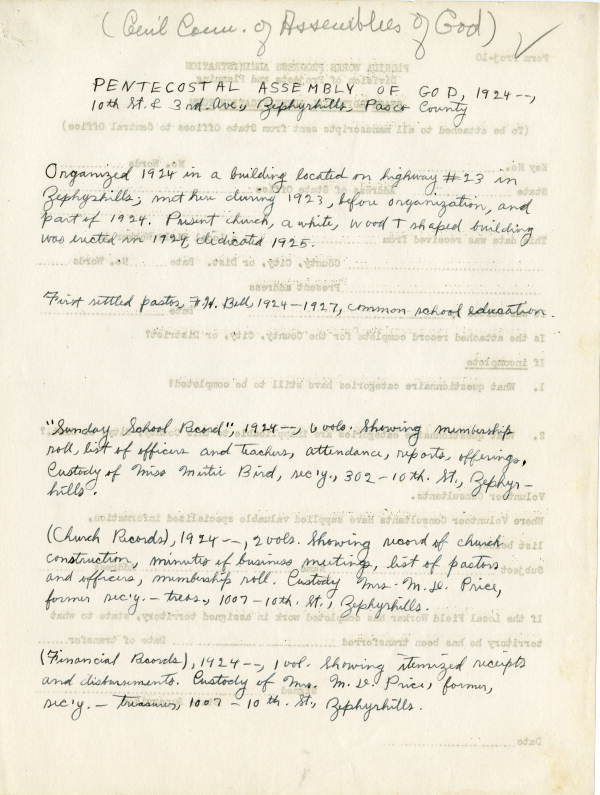 (Genl Conn. of Assemblies of God) ✓
PENTECOSTAL ASSEMBLY OF GOD, 1924 --,
10th St. & 3rd Ave., Zephyrhills, Pasco County
Organized 1924 in a building located on highway #23 in
Zephyrhills; met here during 1923, before organization, and
part of 1924. Present church, a white, wood T shaped building
was erected in 1924, dedicated 1925.
First settled pastor, F.H. Bell 1924-1927, common school education.
"Sunday School Record", 1924 --, 6 vols. Showing membership
roll, list of officers and teachers, attendance, reports, offerings,
Custody of Miss Mitie Bird, sec'y., 302-10th. St., Zephyr-
hills.
(Church Records), 1924 --, 2 vols. Showing record of church
construction, minutes of business meetings, list of pastors
and officers, membership roll. Custody Mrs. M. D. Price,
former sec'y. - treas., 1007-10th. St., Zephyrhills.
(Financial Records), 1924 --, 1 vol. Showing itemized receipts
and disbursements. Custody of Mrs. M. D. Price, former,
sec'y. - treasurer, 1007 - 10th. St., Zephyrhills.